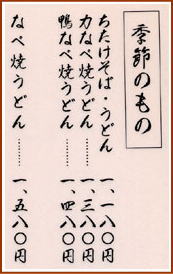 季節のもの
ちたけそば・うどん 一、一八〇円
力なべ焼うどん……… 一、三八〇円
鴨なべ焼うどん……… 一、四八〇円
なべ焼うどん……… 一、五八〇円